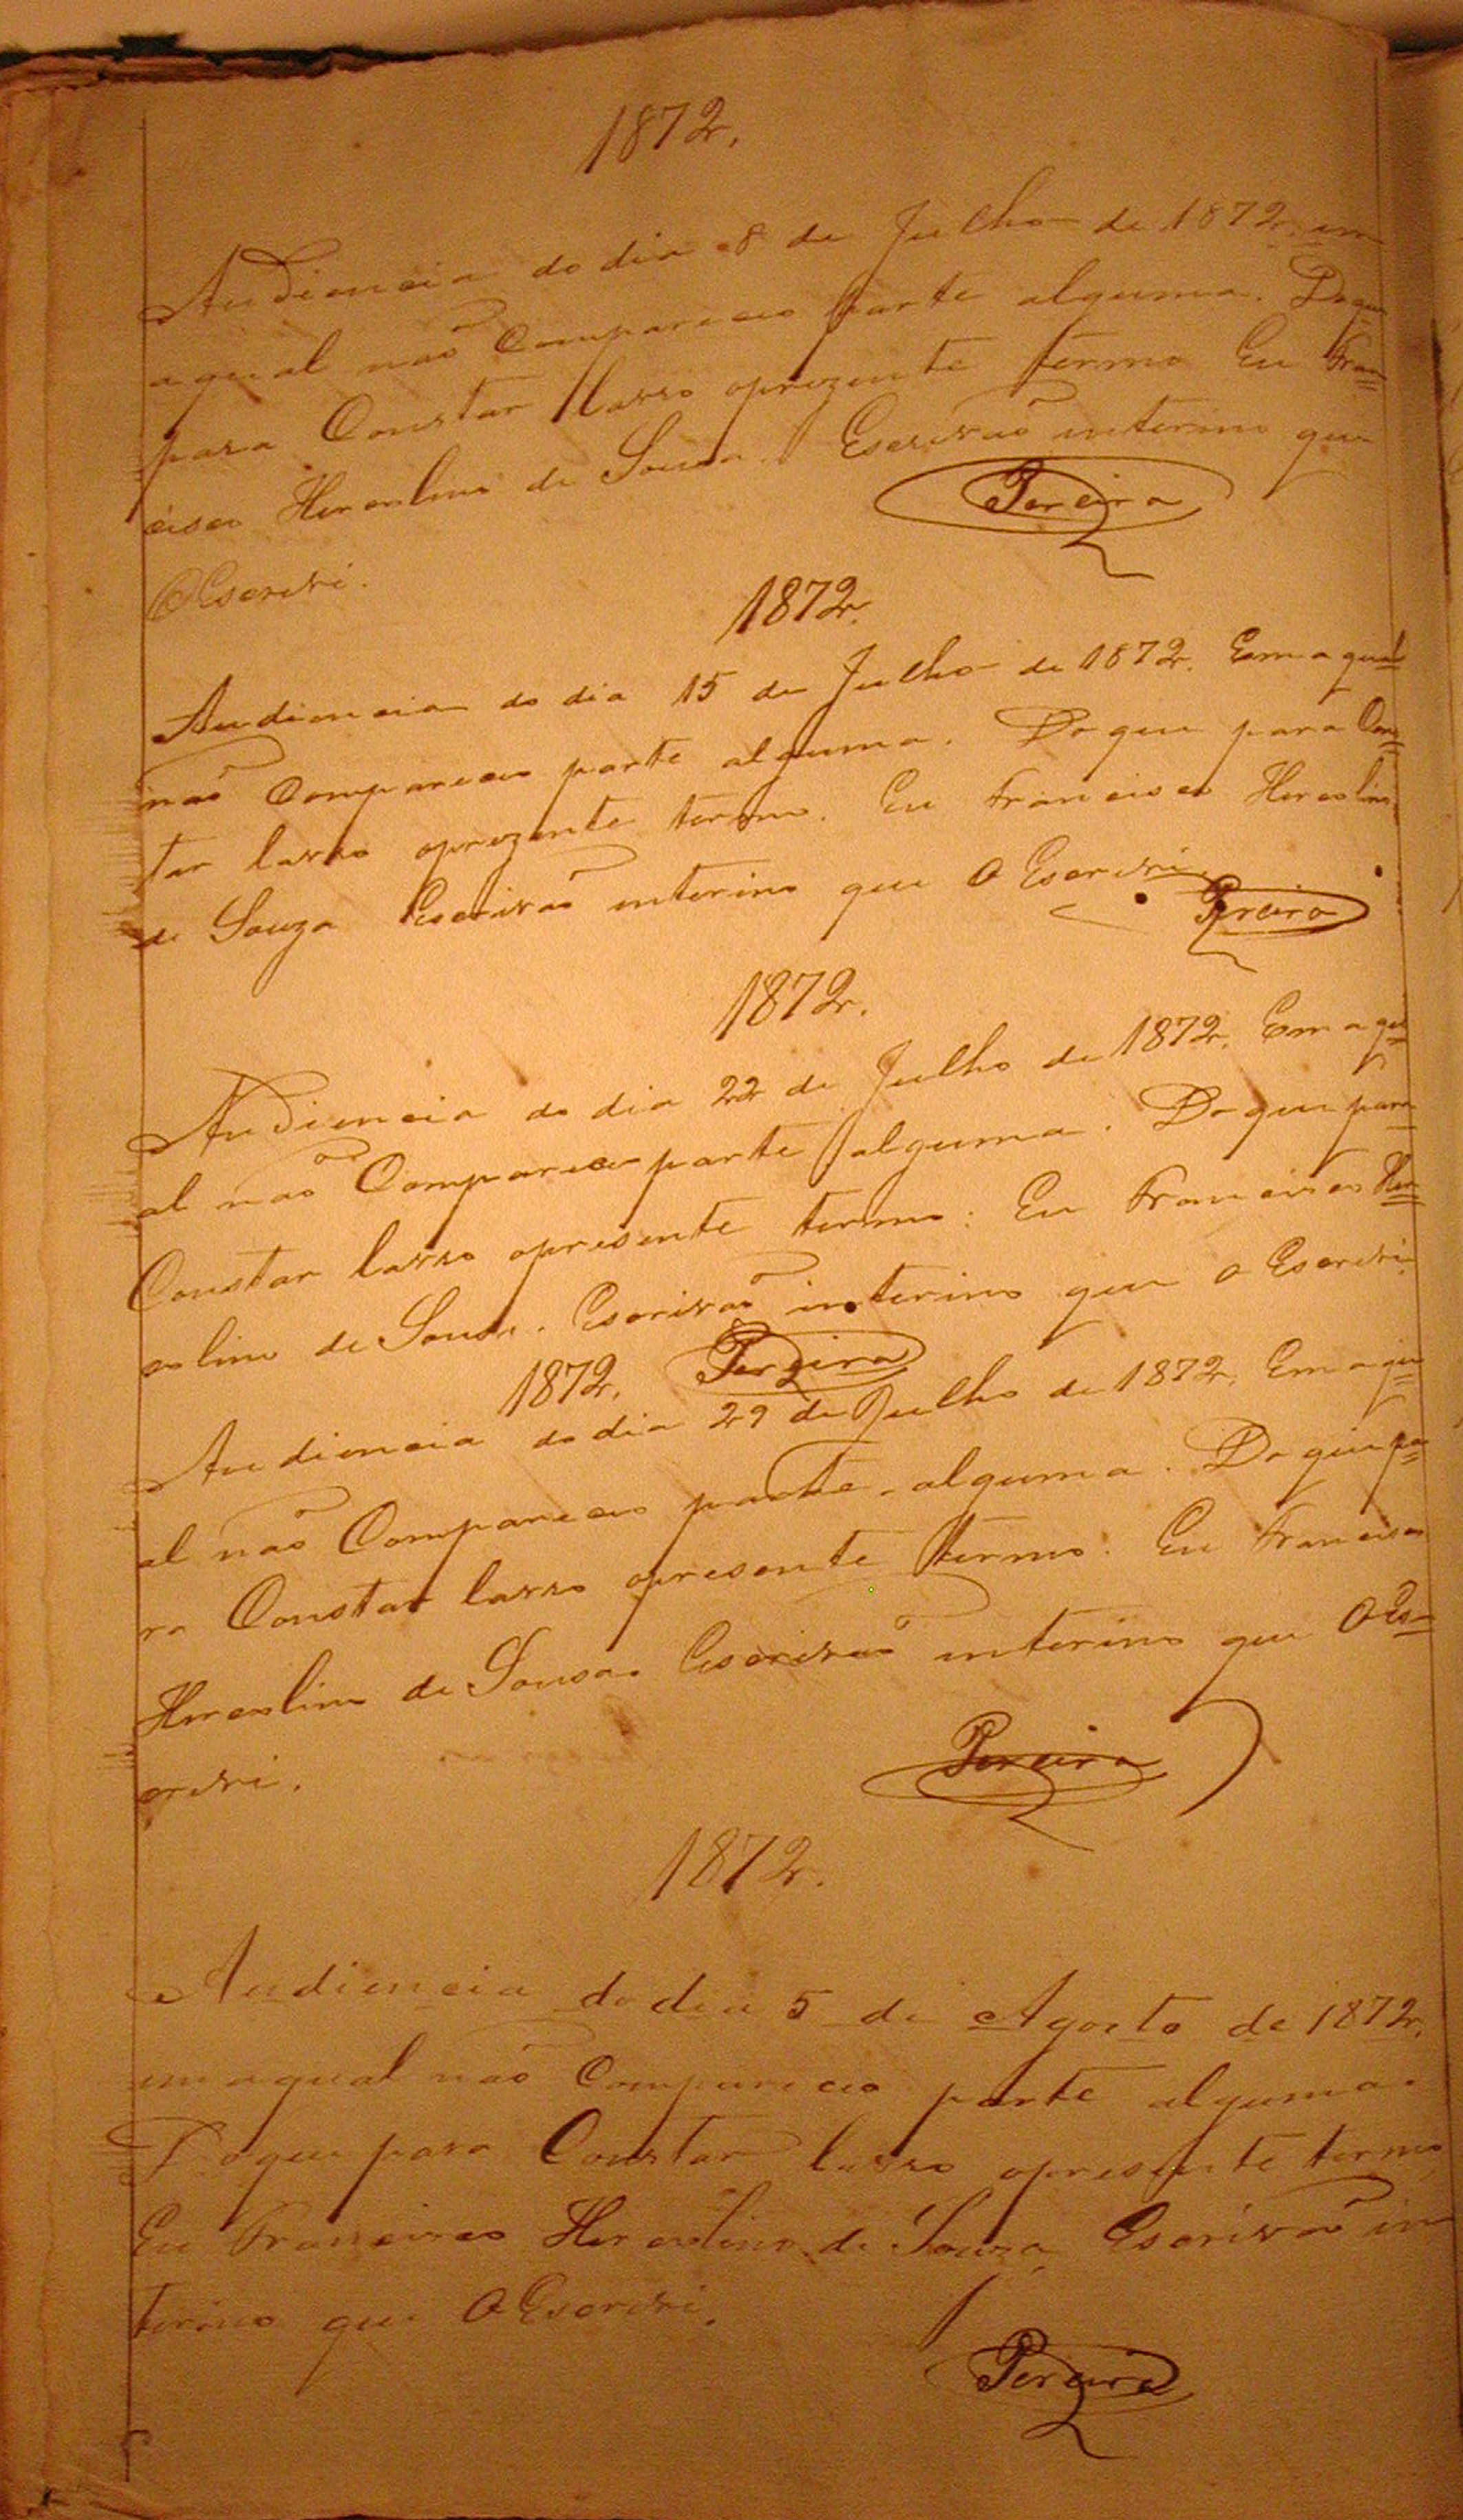 1872.
Audiencia do dia 8 de Julho de 1872, em
aqual naõ Compareceo parte alguma. Do que
para Constar lavro oprezente termo Eu Fran=
cisco Herculino de Sousa. Escrivaõ interino que
OEscrevi.
Pereira
1872.
Audiencia do dia 15 de Julho de 1872. Em a qual
naõ Compareceo parte alguma. Do que para Cons=
tar lavro oprezente termo. Eu Francisco Herculino
de Souza Escrivaõ interino que O Escrevi.
Pereira
1872.
Audiencia do dia 22 de Julho de 1872. Em a qu=
al naõ Compareceo parte alguma. Do que para
Constar lavro opresente termo: Eu Francisco Her=
culino de Sousa. Escrivaõ interino que O Escrevi.
1872. Pereira
Audiencia do dia 29 de Julho de 1872. Em a qu=
al naõ Compareceo parte alguma. Do que pa=
ra Constar lavro opresente termo. Eu Francisco
Herculino de Sousa Escrivaõ interino que O Es=
crevi.
Pereira
1872.
Audiencia do dia 5 de Agosto de 1872,
em aqual naõ Compareceo parte alguma.
Do que para Constar lavro opresente termo
Eu Francisco Herculino de Souza Escrivaõ in
terino que OEscrevi.
Pereira